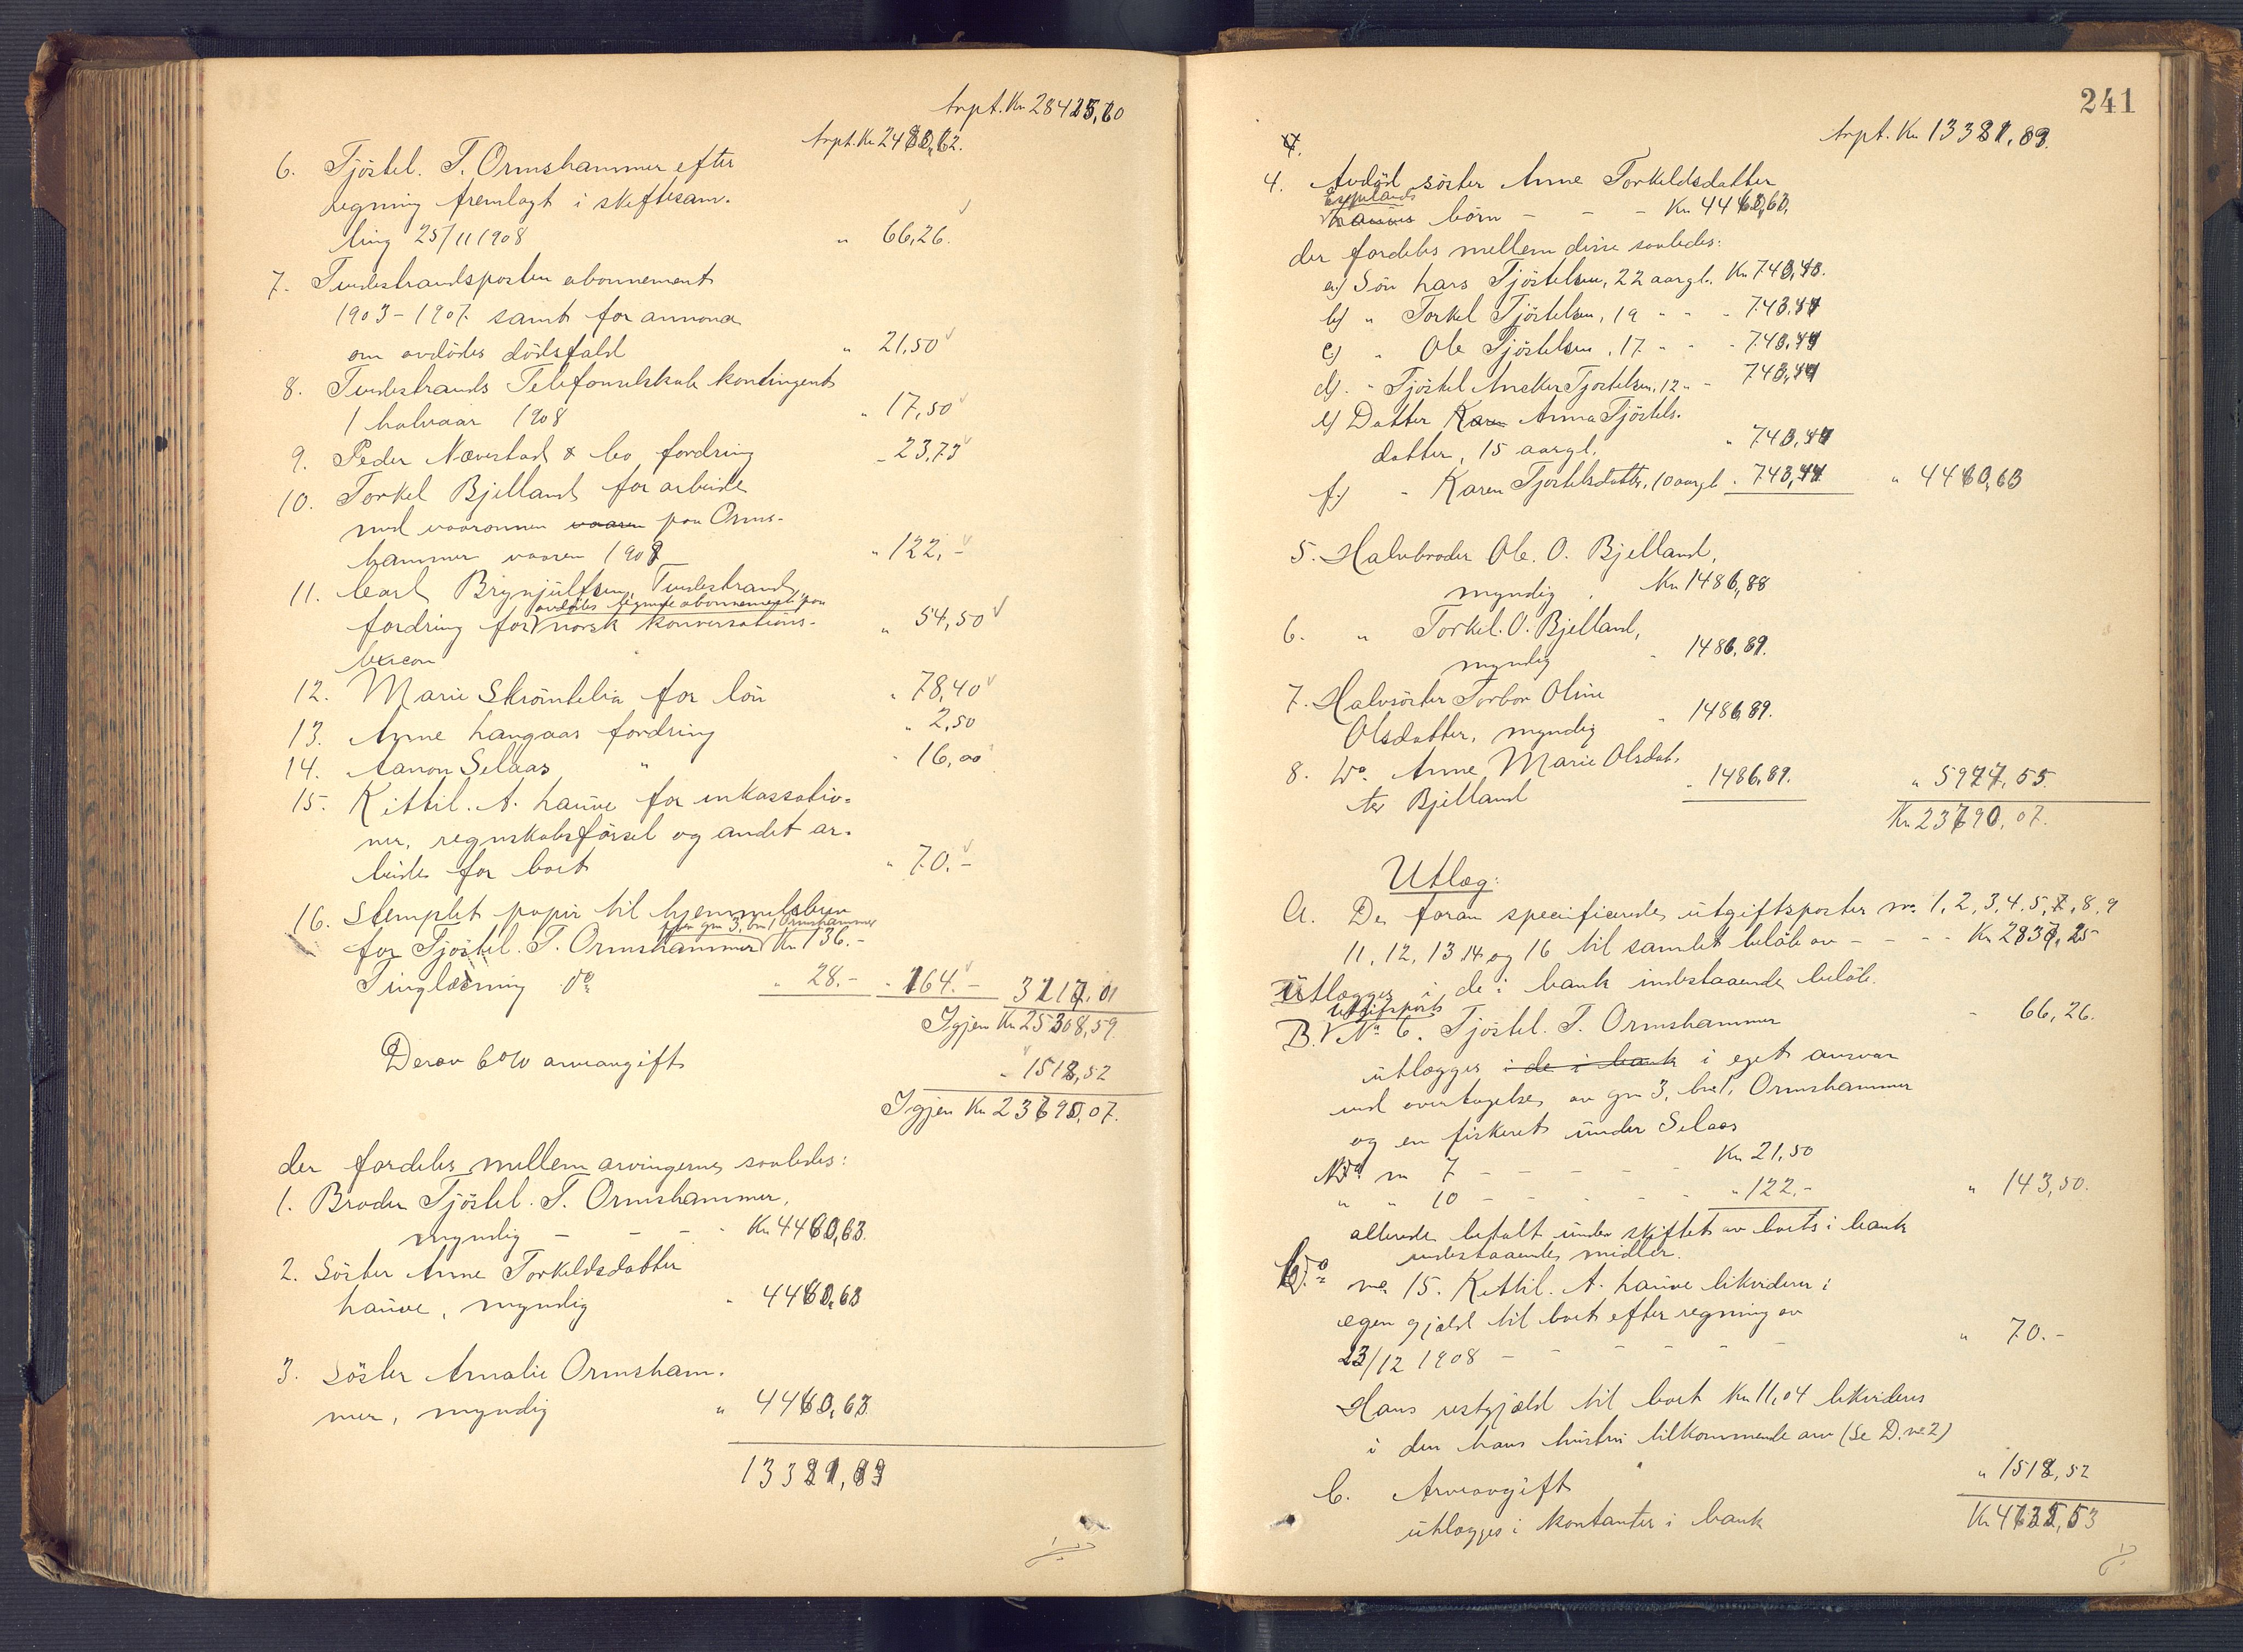 Trpt. Kr. 28425,60
Trpt. Kr. 2480,62.
6. Tjöstel. T. Ormshammer efter
regning fremlagt i skiftesam-
ling 25/11 1908 " 66,26.
7. Tvedestrandsposten abonnement
1903-1907. samt for annonce
om avdödes dödsfald " 21,50
8. Tvedestrands Telefonselskab kontingent
1 halvaar 1908 " 17,50
9. Peder Næverstad & Co fordring " 23,73
10. Torkel Bjelland for arbeide
med vaaronnen vaaren paa Orms-
hammer vaaren 1908 " 122,-
11. Carl Brynjulfsen, Tvedestrand,
avdödes tegnede abonnement paa
fordring for norsk konversations- " 54,50
lexicon
12. Marie Skrömtelia for lön " 78,40
13. Anne Langaas fordring " 2,50
14. Aanon Selaas " " 16,00
15. Kittil. A. Hauve for inkassatio-
ner, regnskabsförsel og andet ar-
beide for boet " 70.-
16. Stemplet papir til hjemmelsbrev
paa gn 3, bn 1 Ormshammer
for Tjöstel. T. Ormshammer Kr. 136.-
Tinglæsning Do " 28.- " 164.- 3117,01
Igjen Kr. 25308,59.
Derav 6 o/o arveavgift " 1518,52
Igjen Kr. 23790,07.
der fordeles mellem arvingerne saaledes:
1. Broder Tjöstel. T. Ormshammer,
myndig - - - Kr. 4460,63.
2. Söster Anne Torkeldsdatter
Hauve, myndig " 4460,63
3. Söster Amalie Ormsham-
mer, myndig " 4460,63
13381,89
241
Trpt. Kr. 13381,89.
4.
4. Avdöd söster Anne Torkeldsdatter
börn - - - Kr. 4460,63,
der fordeles mellem disse saaledes:
a) Sön Lars Tjöstelsen, 22 aar gl. Kr. 743,43.
b) " Torkel Tjöstelsen, 19 " - - 743,44
c) " Ole Tjöstelsen, 17. " - - 743,44
d) " Tjöstel Ancker Tjostelsen, 12 " - 743,44
e) Datter Karen Anna Tjöstels-
datter, 15 aar gl. " 743,44
f.) " Karen Tjostelsdatter, 10 aar gl. " 743,44 " 4460,63
5. Halvbroder Ole. O. Bjelland,
myndig . Kr. 1486,88
6. " Torkel. O. Bjelland,
myndig - 1486,89.
7. Halvsöster Torbor Oline
Olsdatter, myndig " 1486,89.
8. Do. Anne Marie Olsdat-
ter Bjelland " 1486,89. " 5947,55.
Kr. 23790,07.
Utlæg:
A. De foran specificerede utgiftsposter nr. 1, 2, 3, 4, 5, 7, 8, 9
11, 12, 13 14 og 16 til samlet belöb av - - - - Kr. 2837,25
Utlægges i de i bank indestaaende belöb.
Utgiftspost
B. No 6. Tjöstel. T. Ormshammer - 66,26.
utlægges i de i bank i eget ansvar
ved overtagelse av gn 3, bn 1, Ormshammer
og en fiskeret under Selaas
Do nr 7 - - - - - Kr. 21,50
" " 10 - - - - - " 122.- " 143,50.
allerede betalt under skiftet av boets i bank
indestaaende midler.
Do nr. 15. Kittil. A. Hauve likviderer i
egen gjæld til boet efter regning av
23/12 1908 - - - - - " 70.-
Hans restgjæld til boet Kr. 11,04 likvideres
i den hans hustru tilkommende arv (Se D. nr 2)
C. Arveavgift " 1518,52
utlægges i kontanter i bank Kr. 4635,53